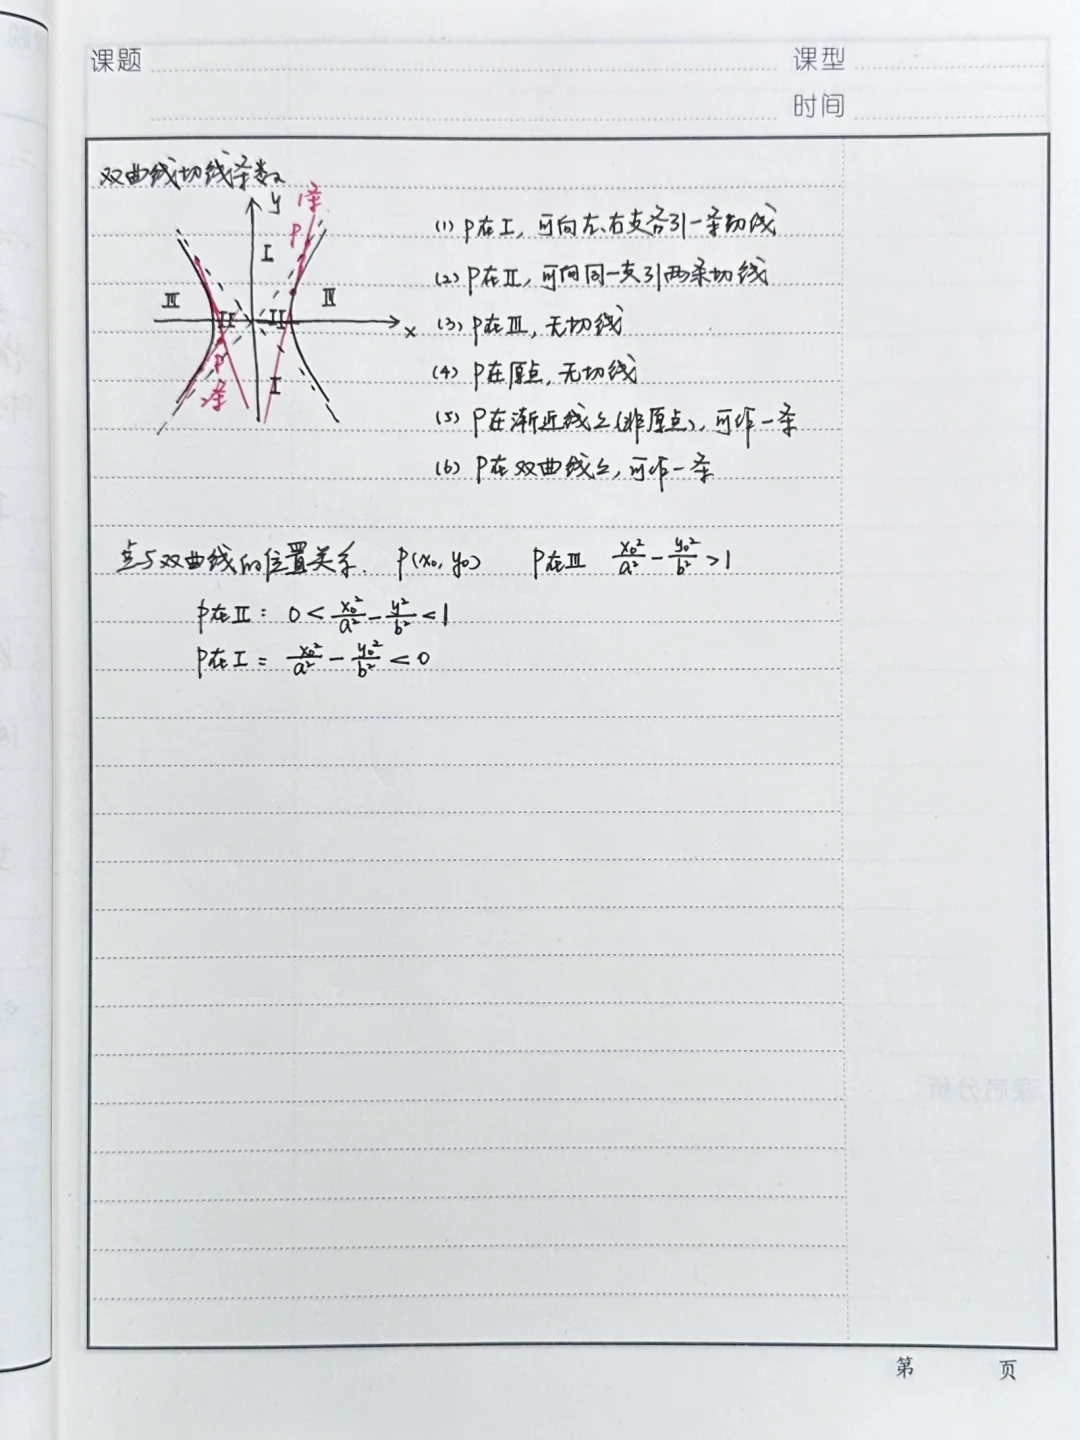 课题 课型
时间
双曲线切线条数
y 1条
P
I
(1) P在I，可向左、右支各引一条切线
(2) P在II，可向同一支引两条切线
III III
II II x
(3) P在III，无切线
P I
(4) P在原点，无切线
2条
(5) P在渐近线上(非原点)，可作一条
(6) P在双曲线上，可作一条
点与双曲线的位置关系. P(x₀, y₀) P在III x₀²/a² - y₀²/b² > 1
P在II： 0 < x₀²/a² - y²/b² < 1
P在I： x₀²/a² - y₀²/b² < 0
第 页